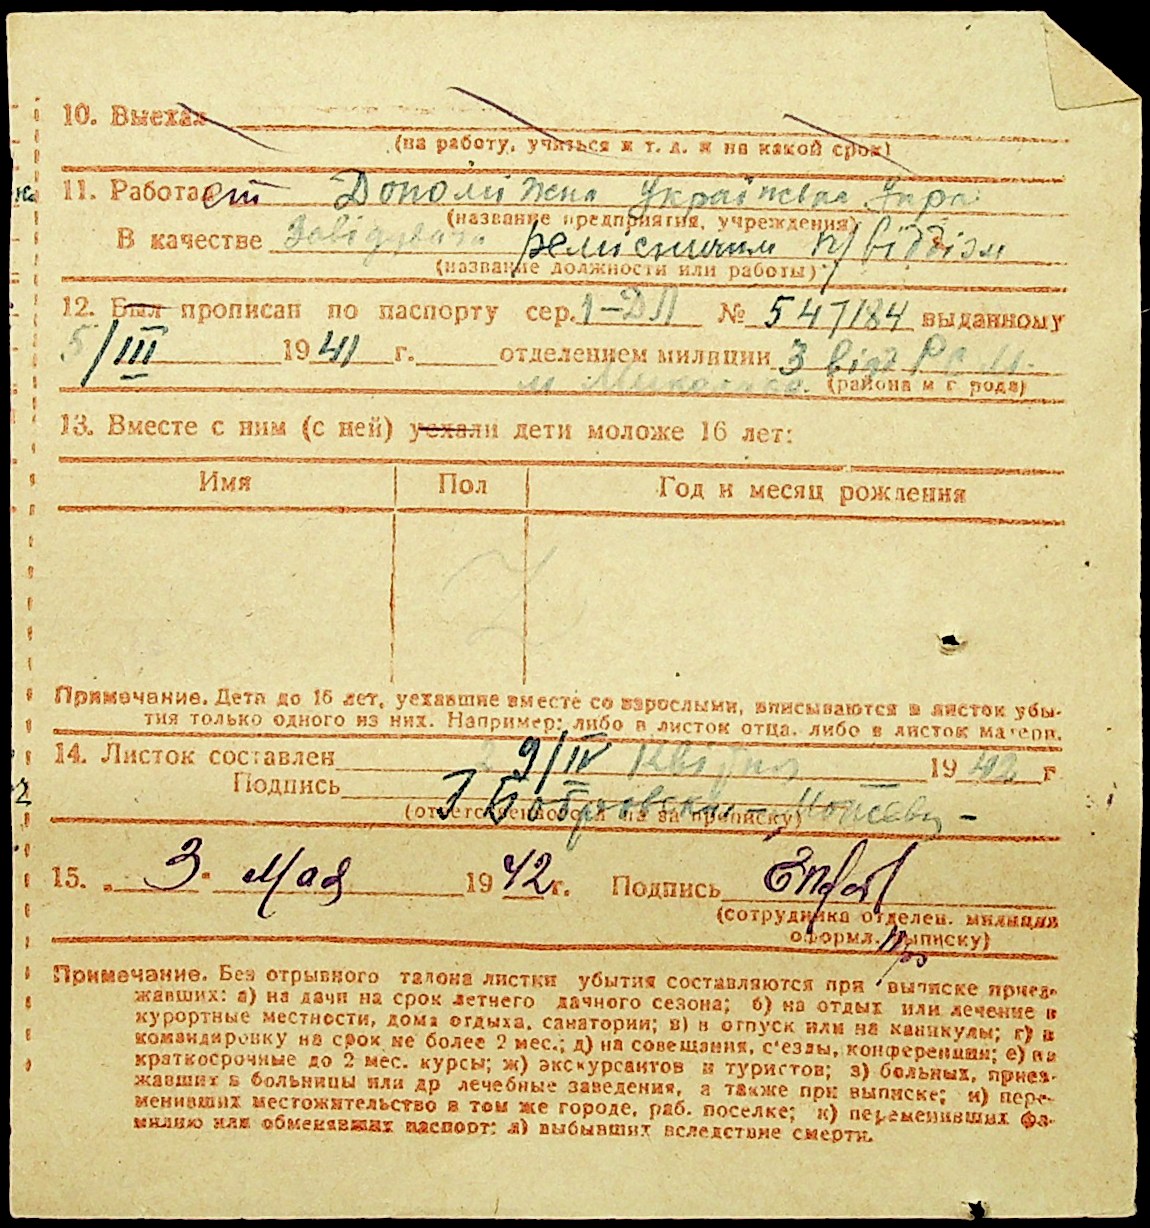 10. Выехал
(на работу, учиться и т. д. и на какой срок)
11. Работает Допоміжна Українська Упра
(название предприятия, учреждения)
В качестве Завідувача ремісничим п/відділ
(название должности или работы)
12. Был прописан по паспорту сер. 1-ДЛ № 547184 выданному
5/III 1941 г. отделением милиции 3 від РСМ
м Миколаєв. (района и г рода)
13. Вместе с ним (с ней) уехали дети моложе 16 лет:
Имя Пол Год и месяц рождения
Z
Примечание. Дети до 16 лет, уехавшие вместе со взрослыми, вписываются в листок убы-
тия только одного из них. Например: либо в листок отца, либо в листок матери.
14. Листок составлен 29/IV квітня 1942 г
Подпись
(ответственного за прописку)
15. „3" Мая 1942 г. Подпись
(сотрудника отделен. милиции
оформл. выписку)
Примечание. Без отрывного талона листки убытия составляются при выписке приез-
жавших: а) на дачи на срок летнего дачного сезона; б) на отдых или лечение в
курортные местности, дома отдыха, санатории; в) в отпуск или на каникулы; г) в
командировку на срок не более 2 мес.; д) на совещания, с'езды, конференции; е) на
краткосрочные до 2 мес. курсы; ж) экскурсантов и туристов; з) больных, приез-
жавших в больницы или др лечебные заведения, а также при выписке; и) пере-
менивших местожительство в том же городе, раб. поселке; к) переменивших фа-
милию или обменявших паспорт; л) выбывших вследствие смерти.